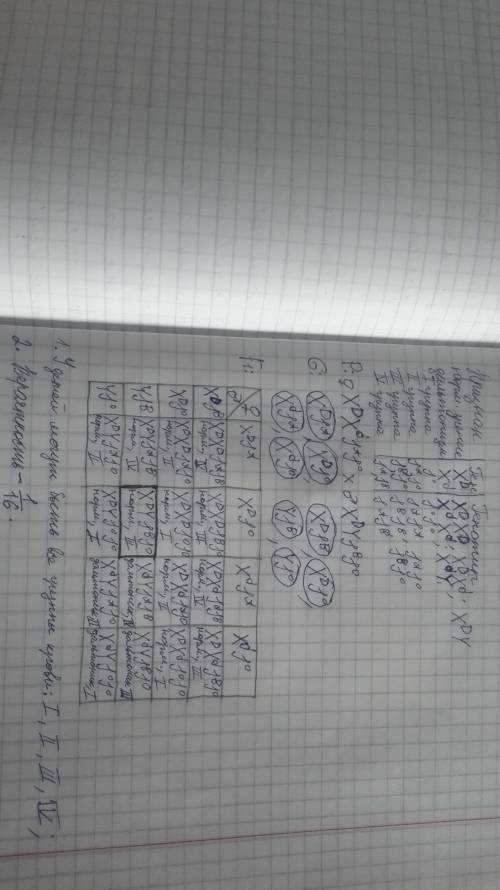 Признак | Ген | Генотип
норм. зрение | X^D | X^DX^D, X^DX^d, X^DY
дальтонизм | X^d | X^dX^d, X^dY
I группа | j^0 | j^0j^0
II группа | j^A | j^Aj^A, j^Aj^0
III группа | j^B | j^Bj^B, j^Bj^0
IV группа | j^Aj^B
P: ♀ X^DX^dj^Aj^0 x ♂ X^DYj^Bj^0
G: X^Dj^A, X^Dj^0 X^Dj^B, X^Dj^0
X^dj^A, X^dj^0 Yj^B, Yj^0
F₁:
♀ ♂ | X^Dj^A | X^Dj^0 | X^dj^A | X^dj^0
X^Dj^B | X^DX^Dj^Aj^B норм., IV | X^DX^Dj^Bj^0 норм., III | X^DX^dj^Aj^B норм., IV | X^DX^dj^Bj^0 норм., III
X^Dj^0 | X^DX^Dj^Aj^0 норм., II | X^DX^Dj^0j^0 норм., I | X^DX^dj^Aj^0 норм., II | X^DX^dj^0j^0 норм., I
Yj^B | X^DYj^Aj^B норм., IV | X^DYj^Bj^0 норм., III | X^dYj^Aj^B дальтоник, IV | X^dYj^Bj^0 дальтоник, III
Yj^0 | X^DYj^Aj^0 норм., II | X^DYj^0j^0 норм., I | X^dYj^Aj^0 дальтоник, II | X^dYj^0j^0 дальтоник, I
1. У детей могут быть все группы крови: I, II, III, IV;
2. Вероятность - 1/16.